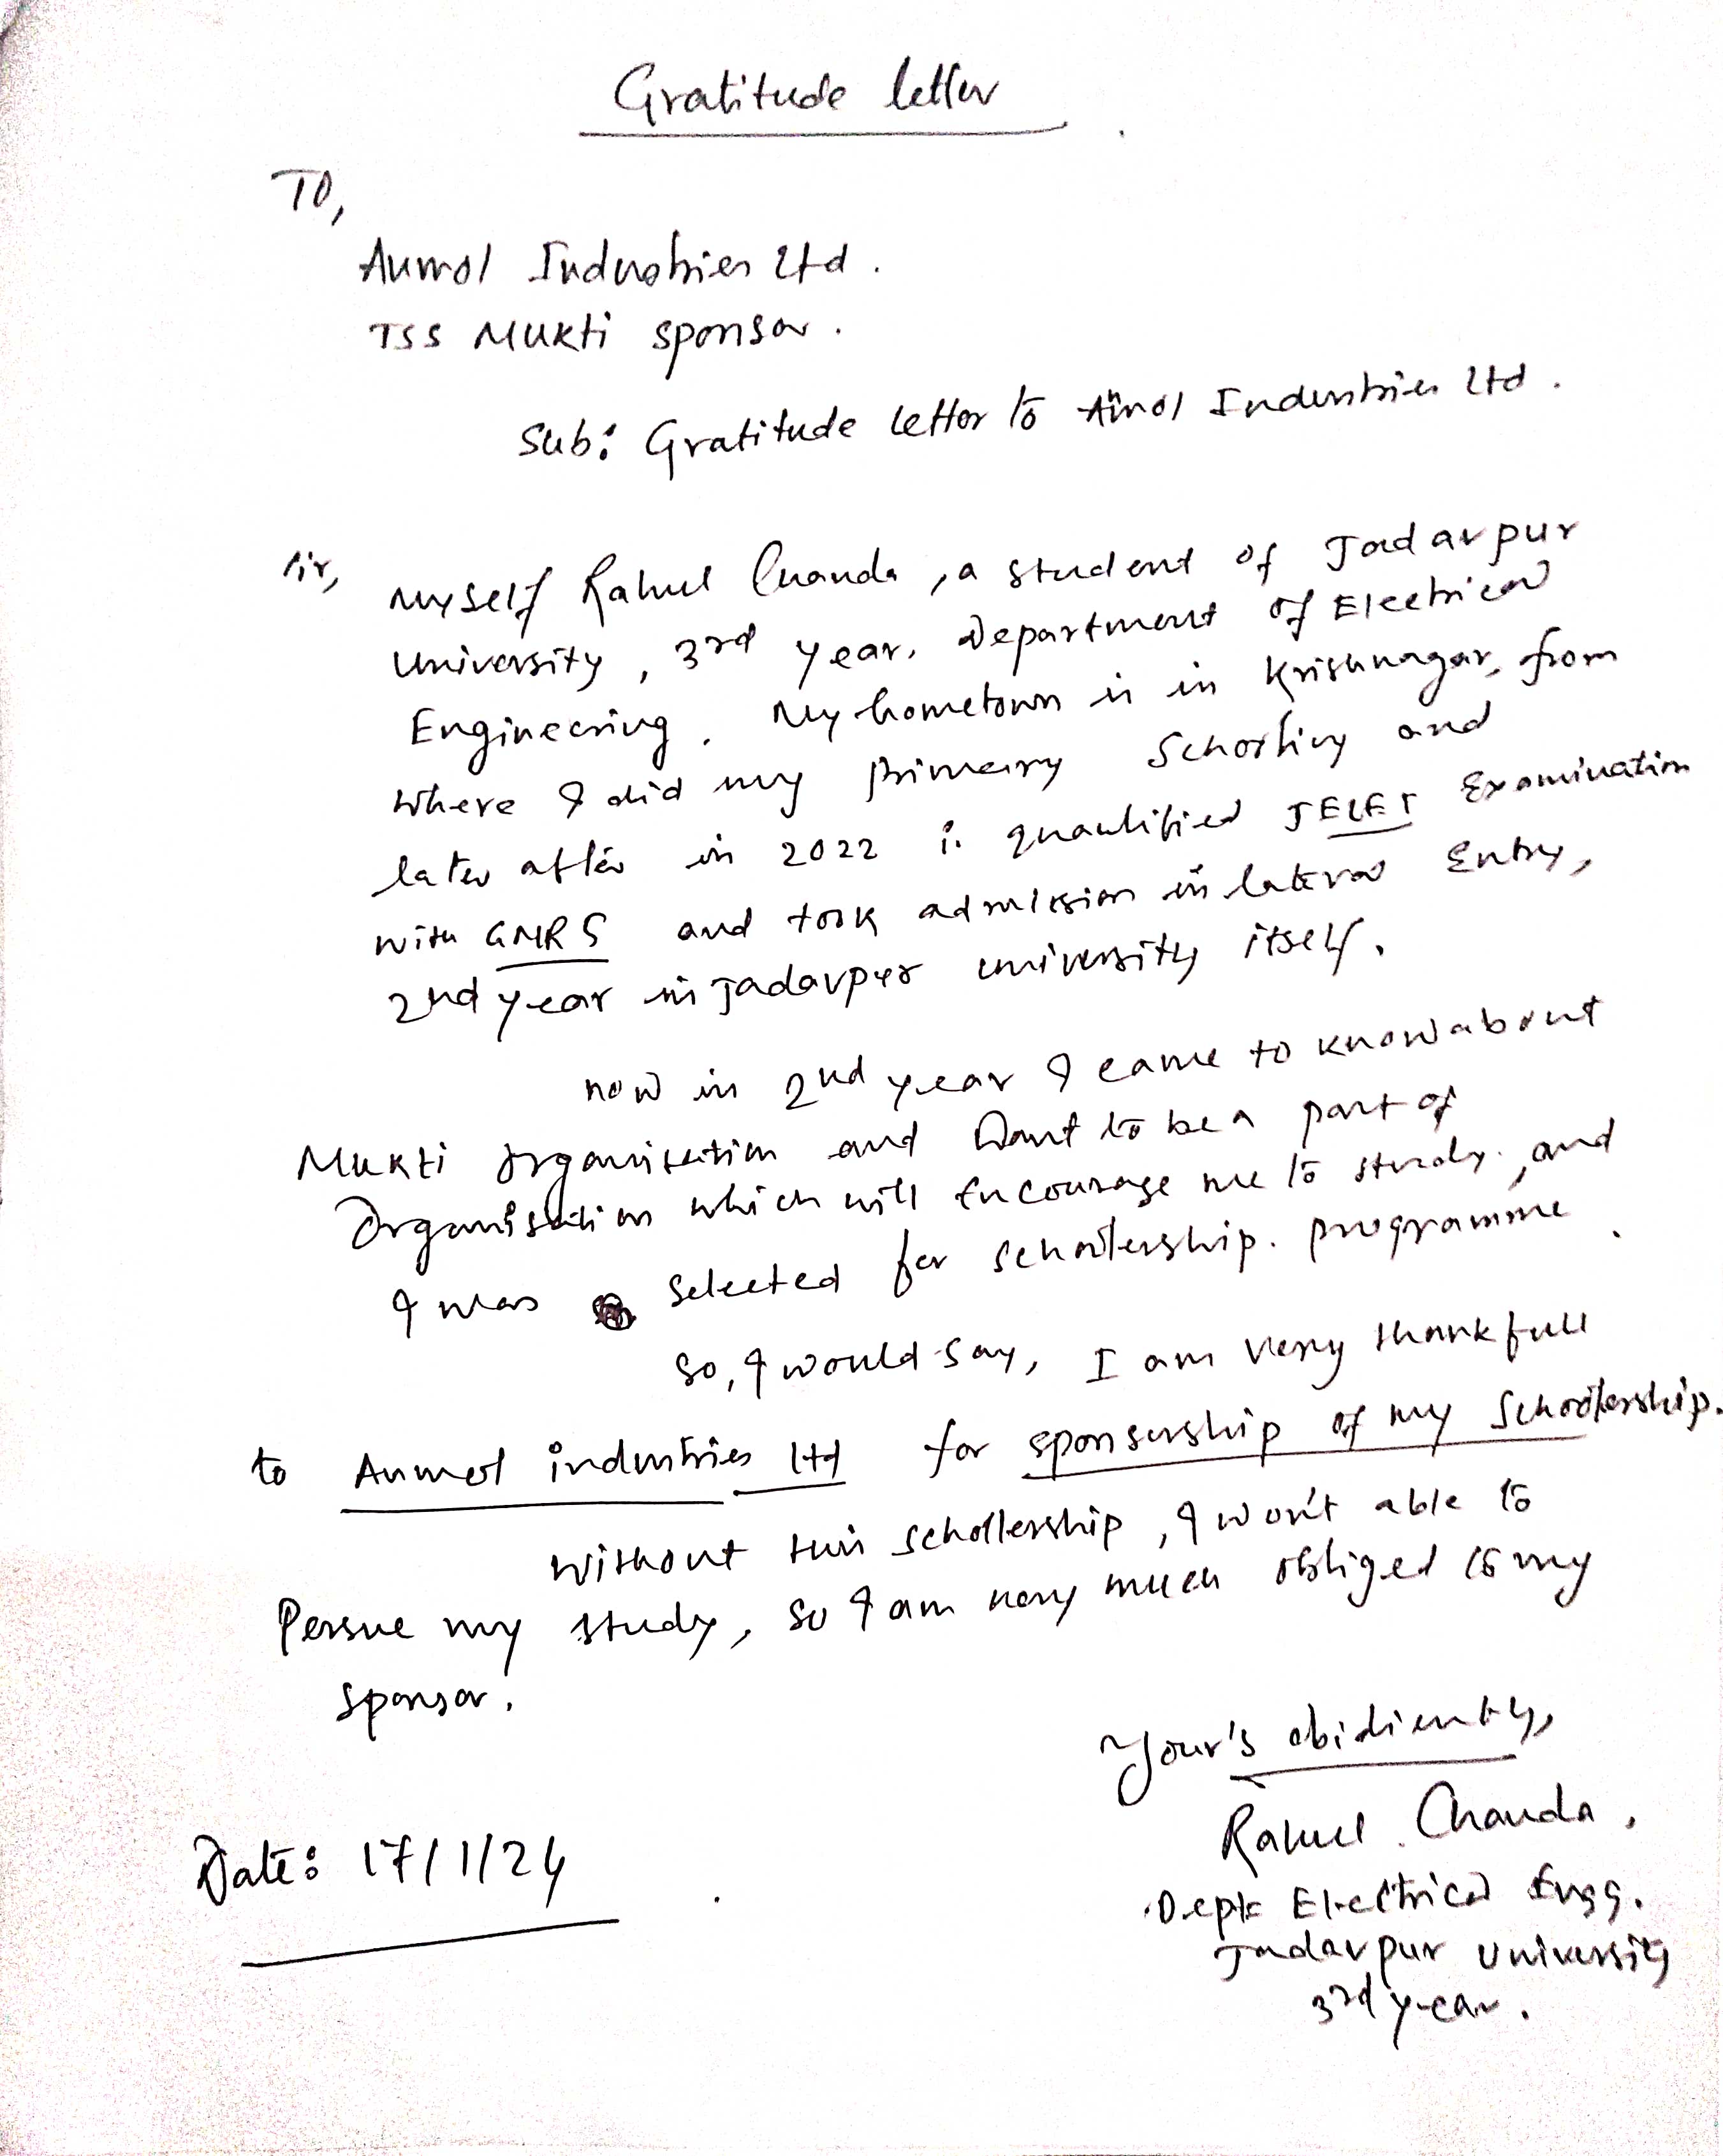 Gratitude letter
To,
Anmol Industries Ltd.
TSS Mukti sponsor.
Sub: Gratitude letter to Anmol Industries Ltd.
Sir,
Myself Rahul Chanda, a student of Jadavpur
University, 3rd year, Department of Electrical
Engineering. My hometown is in Krishnagar, from
where I did my primary schooling and
later after in 2022 i qualified JELET Examination
with GMR 5 and took admission in lateral Entry,
2nd year in Jadavpur university itself.
now in 2nd year I came to know about
Mukti organisation and Want to be a part of
Organisation which will encourage me to study, and
I was selected for schollership. programme.
So, I would say, I am very thankfull
to Anmol industries ltd for sponsership of my Schollership.
Without this schollership, I won't able to
Persue my study, so I am very much obliged to my
sponsor.
Your's obidiently,
Rahul Chanda,
Dept Electrical Engg.
Jadavpur University
3rd year.
Date: 17/1/24